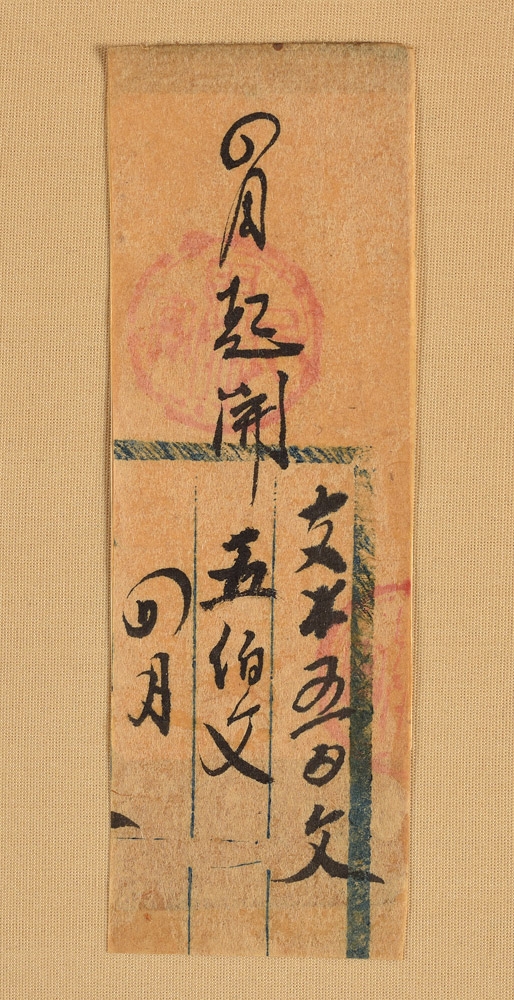 四月起開
支本五百文
五伯文
四月